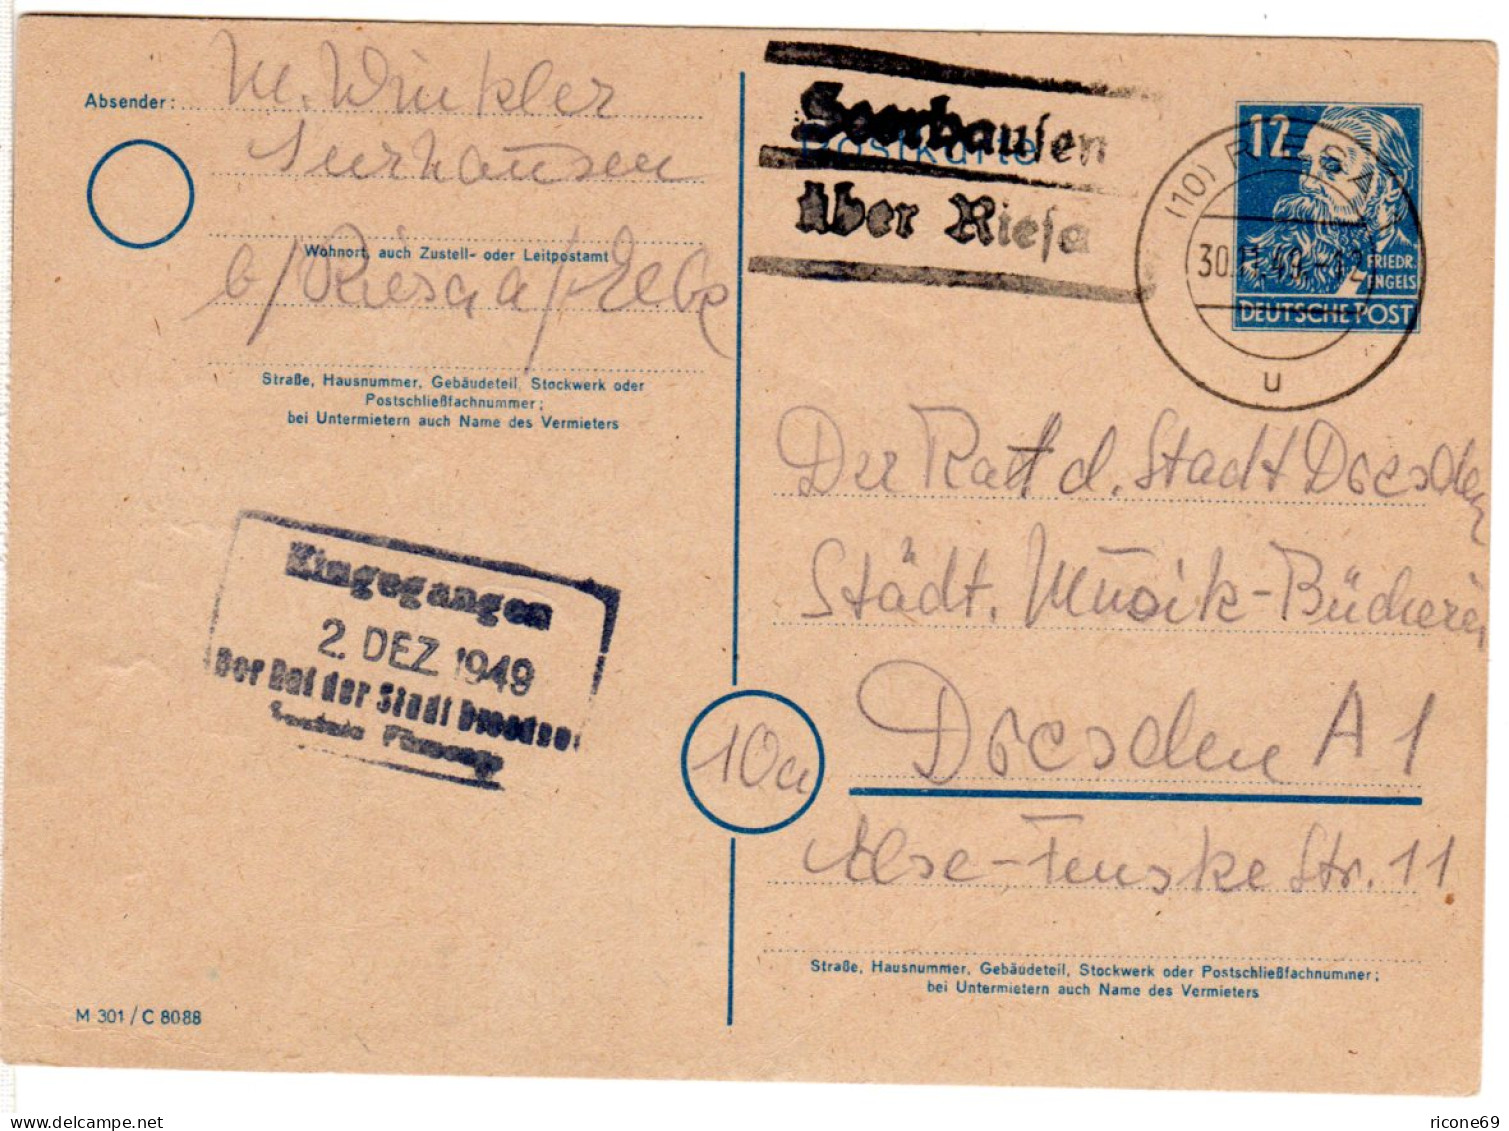 Absender: M. Winkler
Seerhausen
Wohnort, auch Zustell- oder Leitpostamt
b/Riesa a/Elbe
Straße, Hausnummer, Gebäudeteil, Stockwerk oder
Postschließfachnummer;
bei Untermietern auch Name des Vermieters
Eingegangen
2. DEZ 1949
Der Rat der Stadt Dresden
M 301 / C 8088
Seerhausen
Postkarte
über Riesa
(10) RIESA
30.11.49.-12
u
12
FRIEDR.
ENGELS
DEUTSCHE POST
Der Rat d. Stadt Dresden
Städt. Musik-Bücherei
10a
Dresden A 1
Straße, Hausnummer, Gebäudeteil, Stockwerk oder Postschließfachnummer;
bei Untermietern auch Name des Vermieters
Str. 11
ricone69